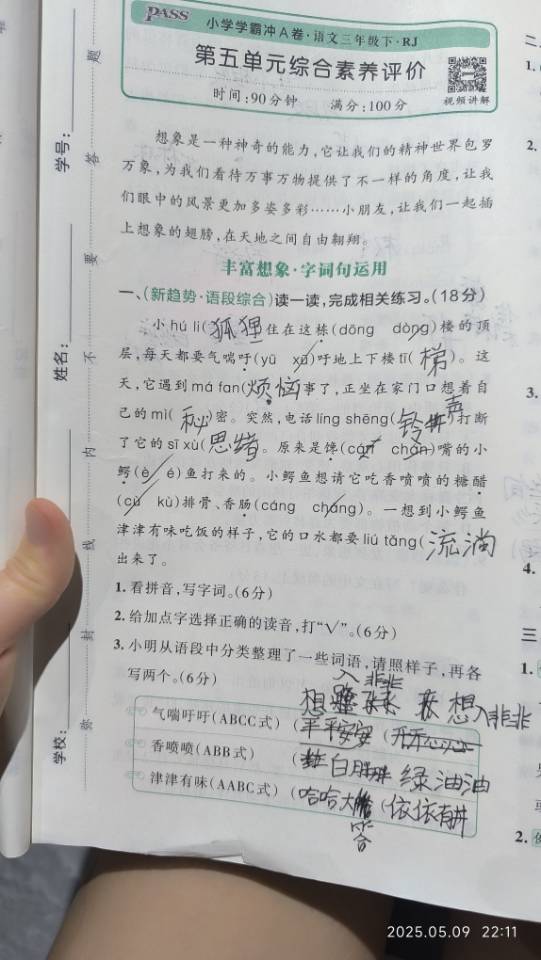 PASS
小学学霸冲A卷·语文三年级下·RJ
第五单元综合素养评价
时间:90分钟 满分:100分
视频讲解
想象是一种神奇的能力,它让我们的精神世界包罗
万象,为我们看待万事万物提供了不一样的角度,让我
们眼中的风景更加多姿多彩……小朋友,让我们一起插
上想象的翅膀,在天地之间自由翱翔。
丰富想象·字词句运用
一、(新趋势·语段综合)读一读,完成相关练习。(18分)
小hú li(狐狸)住在这栋(dōng dòng)楼的顶
层,每天都要气喘吁(yū xū)吁地上下楼tī(梯)。这
天,它遇到má fan(烦恼)事了,正坐在家门口想着自
己的mì(秘)密。突然,电话líng shēng(铃声)打断
了它的sī xù(思绪)。原来是馋(cán chán)嘴的小
鳄(è é)鱼打来的。小鳄鱼想请它吃香喷喷的糖醋
(cù kù)排骨、香肠(cáng cháng)。一想到小鳄鱼
津津有味吃饭的样子,它的口水都要liú tǎng(流淌)
出来了。
1.看拼音,写字词。(6分)
2.给加点字选择正确的读音,打“√”。(6分)
3.小明从语段中分类整理了一些词语,请照样子,再各
写两个。(6分)
入非非
想 想入非非
气喘吁吁(ABCC式)(平平安安 (开开心心
香喷喷(ABB式) (白胖胖 绿油油
津津有味(AABC式)(哈哈大笑 (依依有
学号:
姓名:
学校:
题
答
要
不
内
线
封
弥
二
1.
2.
3.
4.
三
1.
2.
2025.05.09 22:11